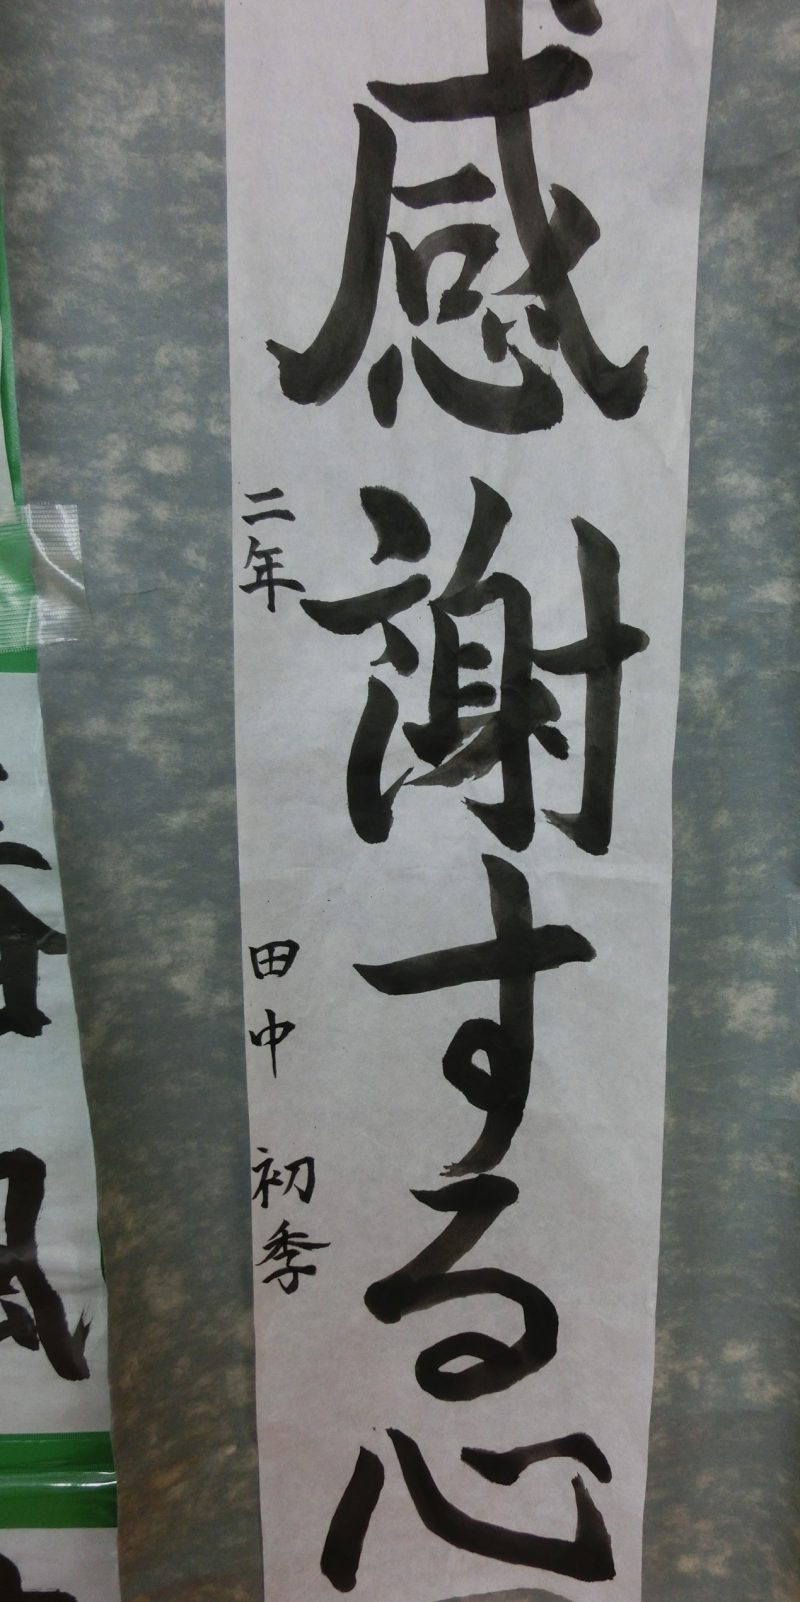 感謝する心
二年 田中 初季